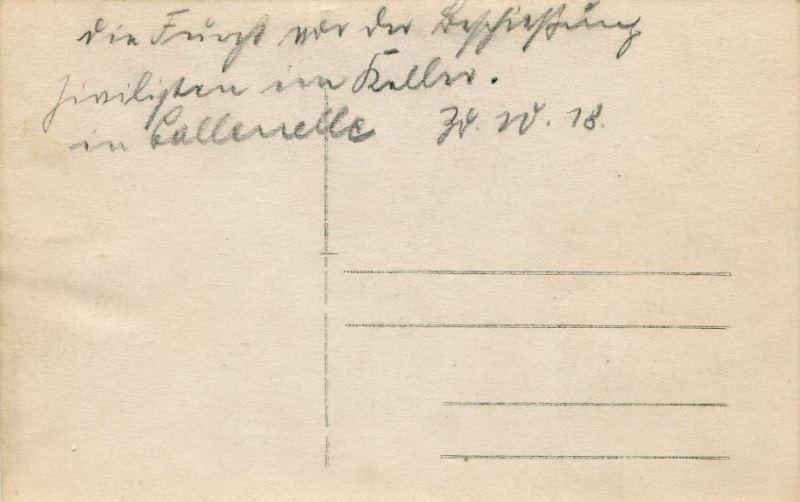 die Furcht vor der Beschießung
Zivilisten im Keller.
in Callenelle 30.10.18.